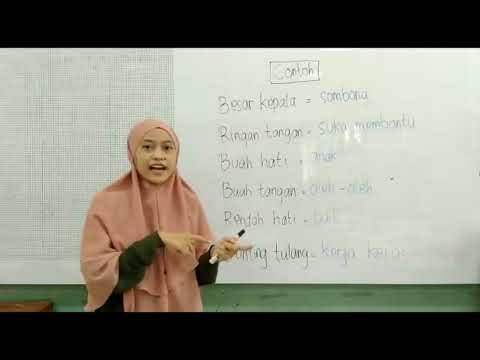 Contoh
Besar kepala = sombong
Ringan tangan = suka membantu
Buah hati = anak
Buah tangan = oleh-oleh
Rendah hati =
tulang = kerja